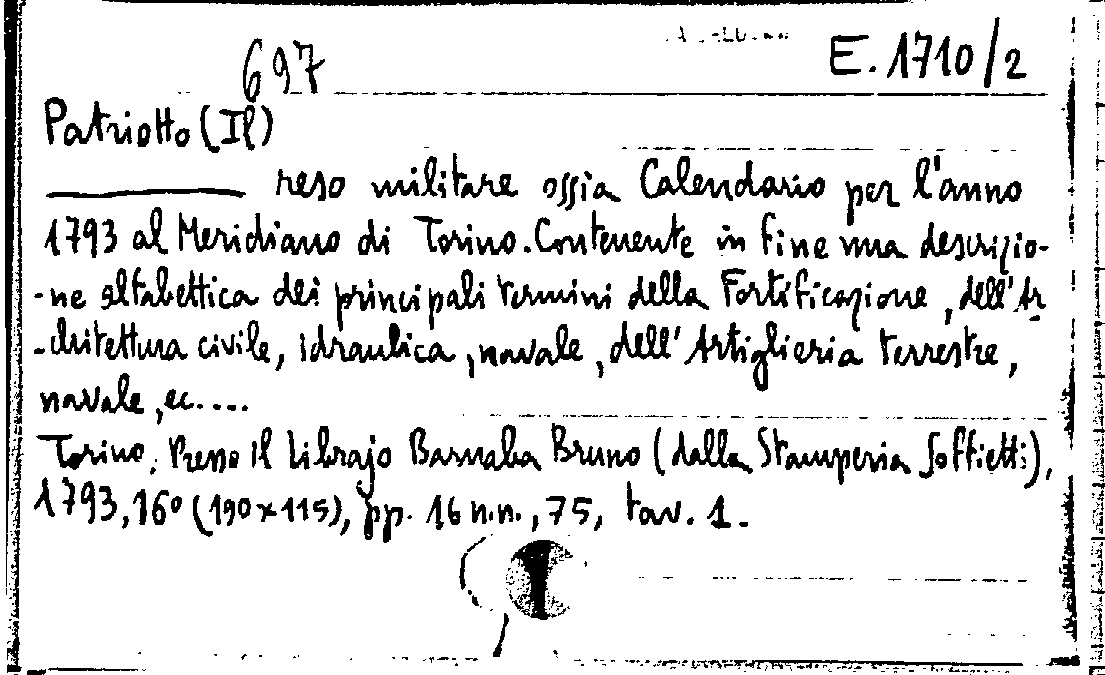 697
E. 1710/2
Patriotto (Il)
reso militare ossia Calendario per l'anno
1793 al Meridiano di Torino. Contenente in fine una descrizio-
-ne alfabettica dei principali termini della Fortificazione, dell'Ar
-chitettura civile, idraulica, navale, dell'Artiglieria terrestre,
navale, ec....
Torino, Presso il Librajo Barnaba Bruno (dalla Stamperia Soffietti),
1793, 16º (190x115), pp. 16 n.n., 75, tav. 1.